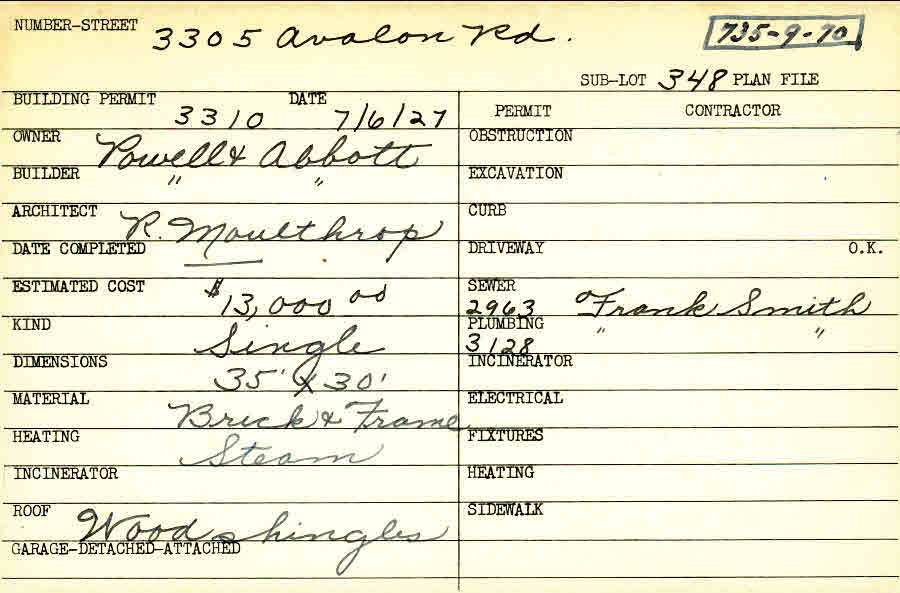 NUMBER-STREET 3305 Avalon Rd. 735-9-70
SUB-LOT 348 PLAN FILE
BUILDING PERMIT 3310 DATE 7/6/27
PERMIT CONTRACTOR
OWNER Powell & Abbott
OBSTRUCTION
BUILDER " "
EXCAVATION
ARCHITECT R. Moulthrop
CURB
DATE COMPLETED
DRIVEWAY O.K.
ESTIMATED COST $13,000 00
SEWER 2963 Frank Smith
KIND Single
PLUMBING 3128 " "
DIMENSIONS 35' x 30'
INCINERATOR
MATERIAL Brick & Frame
ELECTRICAL
HEATING Steam
FIXTURES
INCINERATOR
HEATING
ROOF Wood shingles
SIDEWALK
GARAGE-DETACHED-ATTACHED